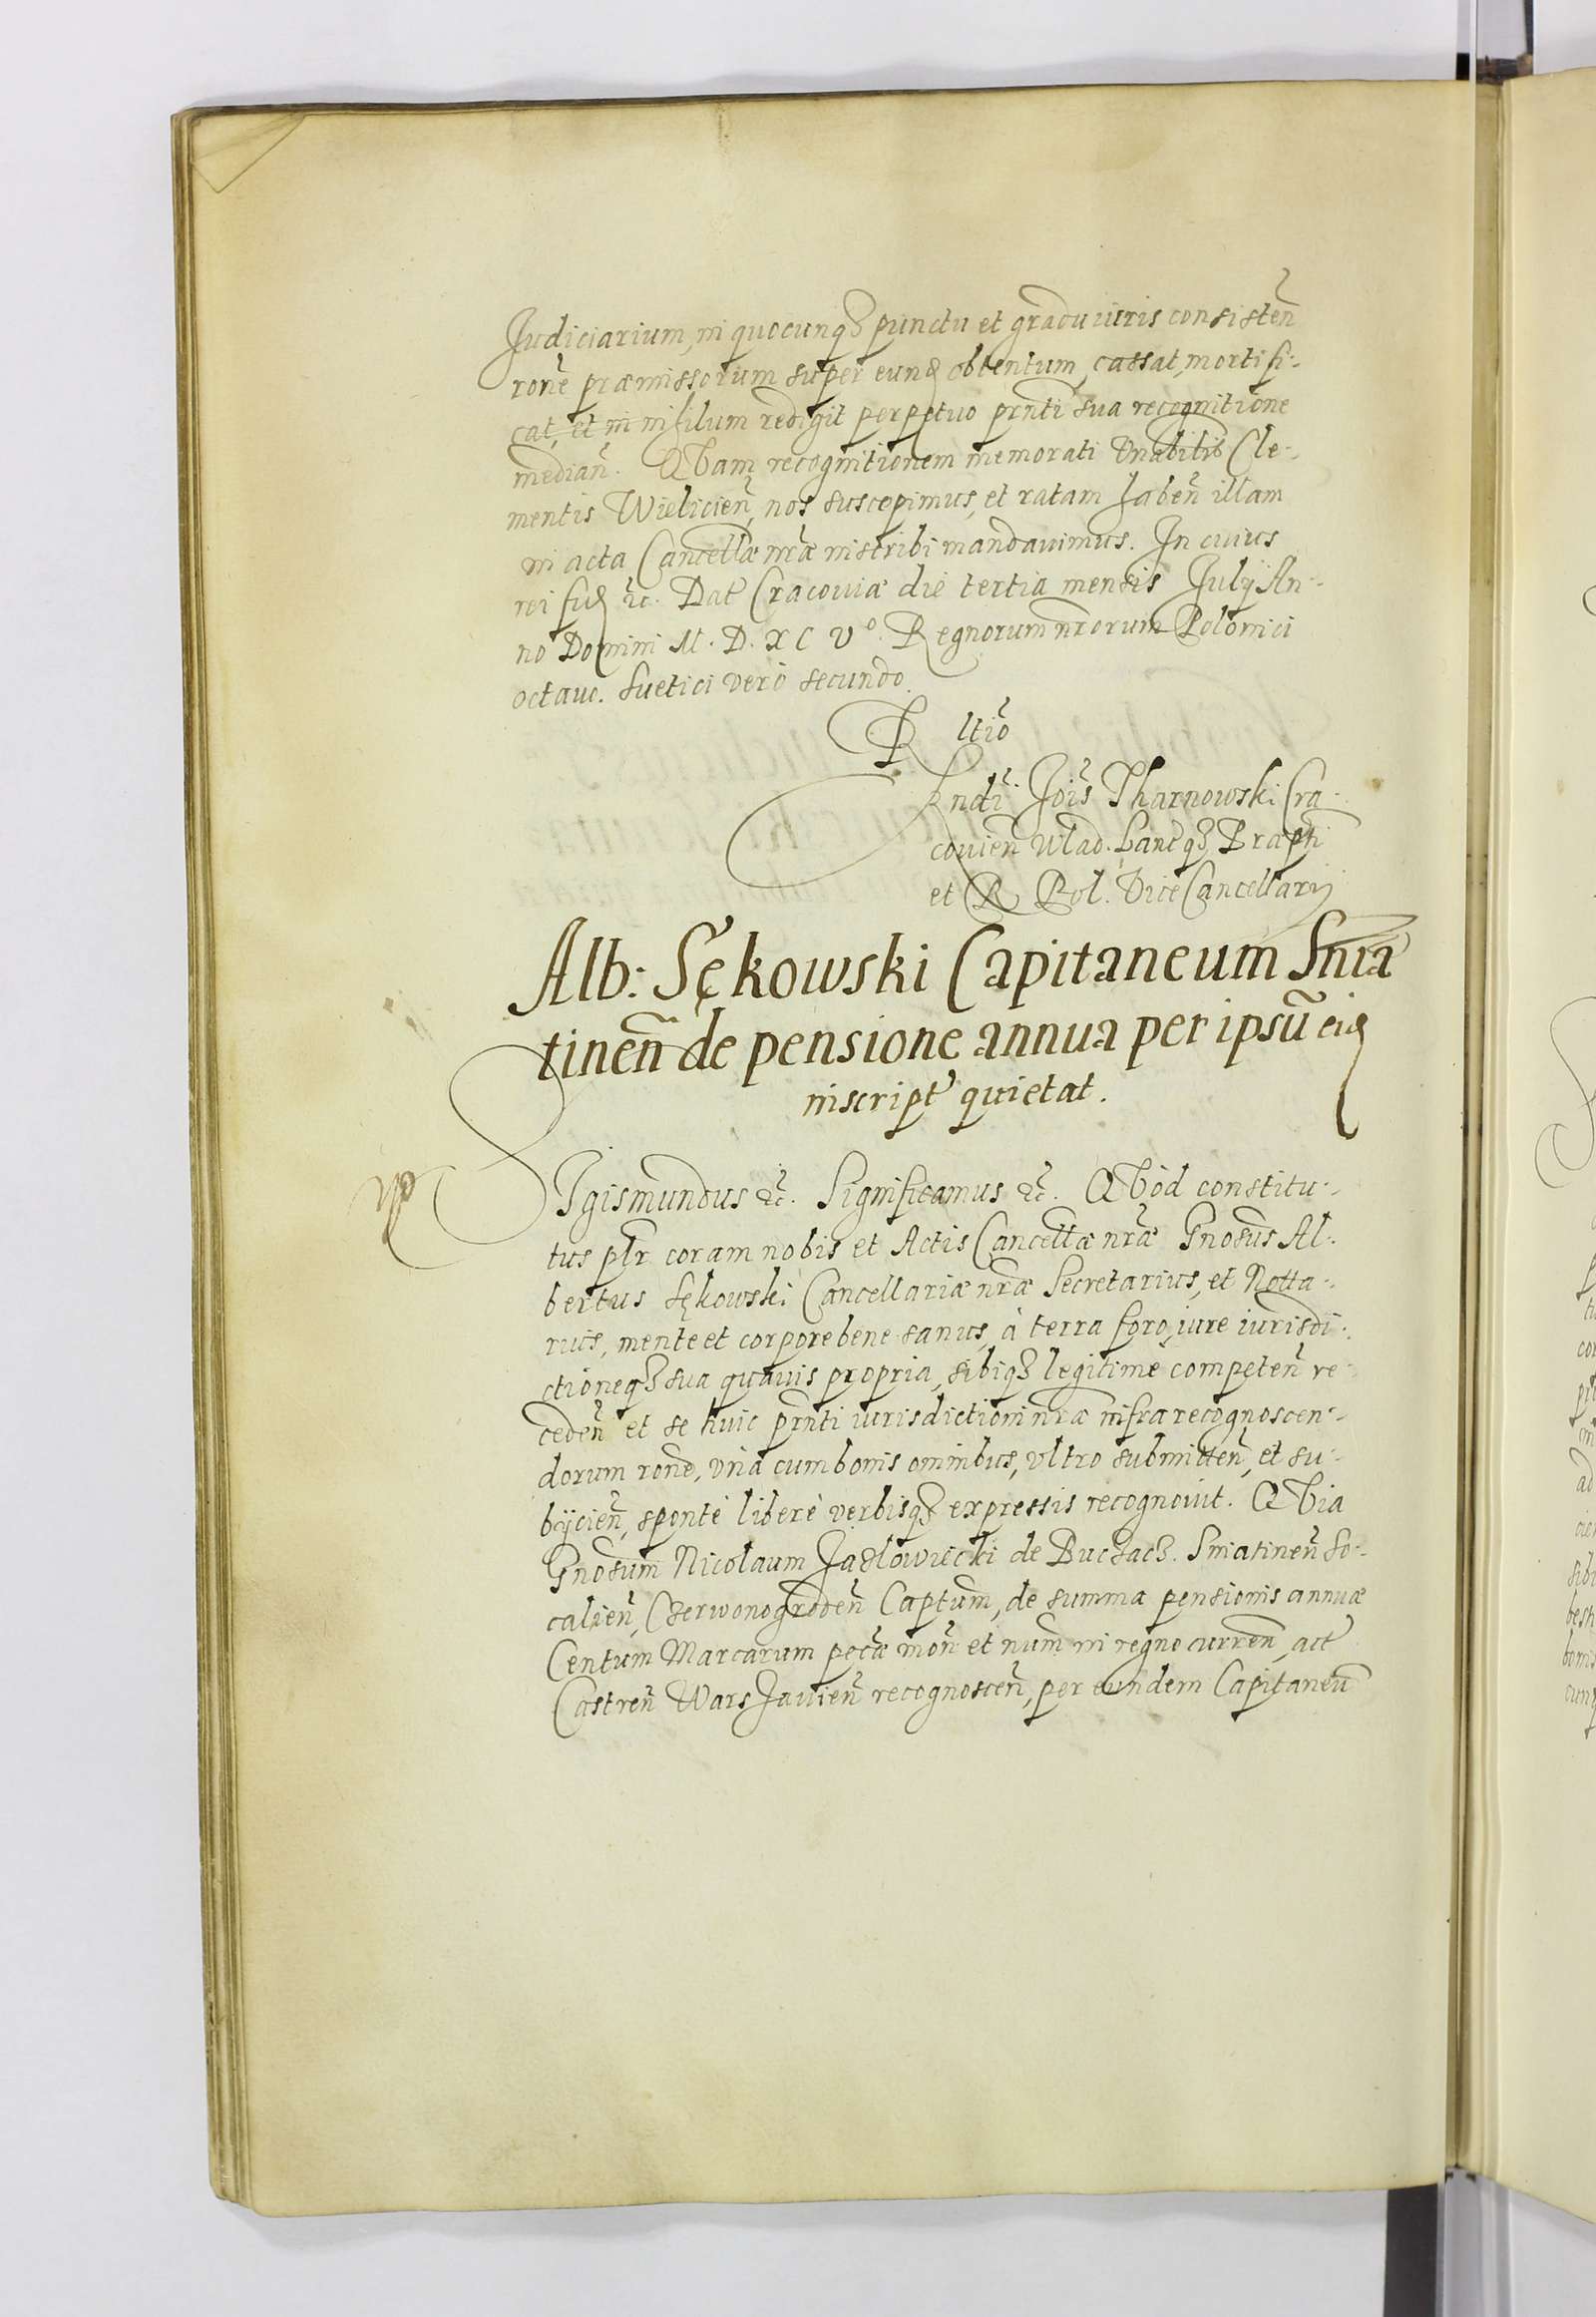 Judiciarium, in quocunqȝ punctu et gradu iuris consisteñ
roñe præmissorum super eund obtentum, cassat, mortifi-
cat, et in nihilum redigit perpetuo prñti sua recognitione
mediañ. Quam recognitionem memorati Vnabilis Cle-
mentis Wielicieñ, nos suscepimus, et ratam habeñ illam
in acta Cancellæ nrãe inscribi mandauimus. In cuius
rei fid etc. Dat Cracouiæ die tertia mensis Julÿ An-
no Domini M. D. XC V° Regnorum nrorum Polonici
octauo. Suetici verò secundo.
R ltiõ
Rndi Jois Tharnowski Cra-
couieñ Wlad. Lancqȝ Præpti
et R. Pol. ViceCancellarÿ
Alb: Sękowski Capitaneum Snia
tineñ de pensione annua per ipsũ eid
inscript quietat.
SIgismundus etc. Significamus etc. Quòd constitu-
tus plr coram nobis et Actis Cancellæ nrãe Gnosus Al-
bertus Sękowski Cancellariæ nrãe Secretarius, et Notta-
rius, mente et corpore bene sanus, à terra foro, iure iurisdi-
ctioneqȝ sua quauis propria, sibiqȝ legitimè competeñ re-
cedeñ et se huic prñti iurisdictioni nrãe infrarecognoscen-
dorum roñe, vnà cum bonis omnibus, vltro submitteñ, et su-
bÿcieñ, spontè liberè verbisqȝ expressis recognouit. Quia
Gnosum Nicolaum Jazlowiecki de Buczacz. Sniatineñ So-
calieñ, Czerwonogrodeñ Captum, de summa pensionis annuæ
Centum Marcarum pecæ moñ et num in regno curreñ, act
Castreñ Warshauieñ recognosceñ, per eundem Capitaneũ